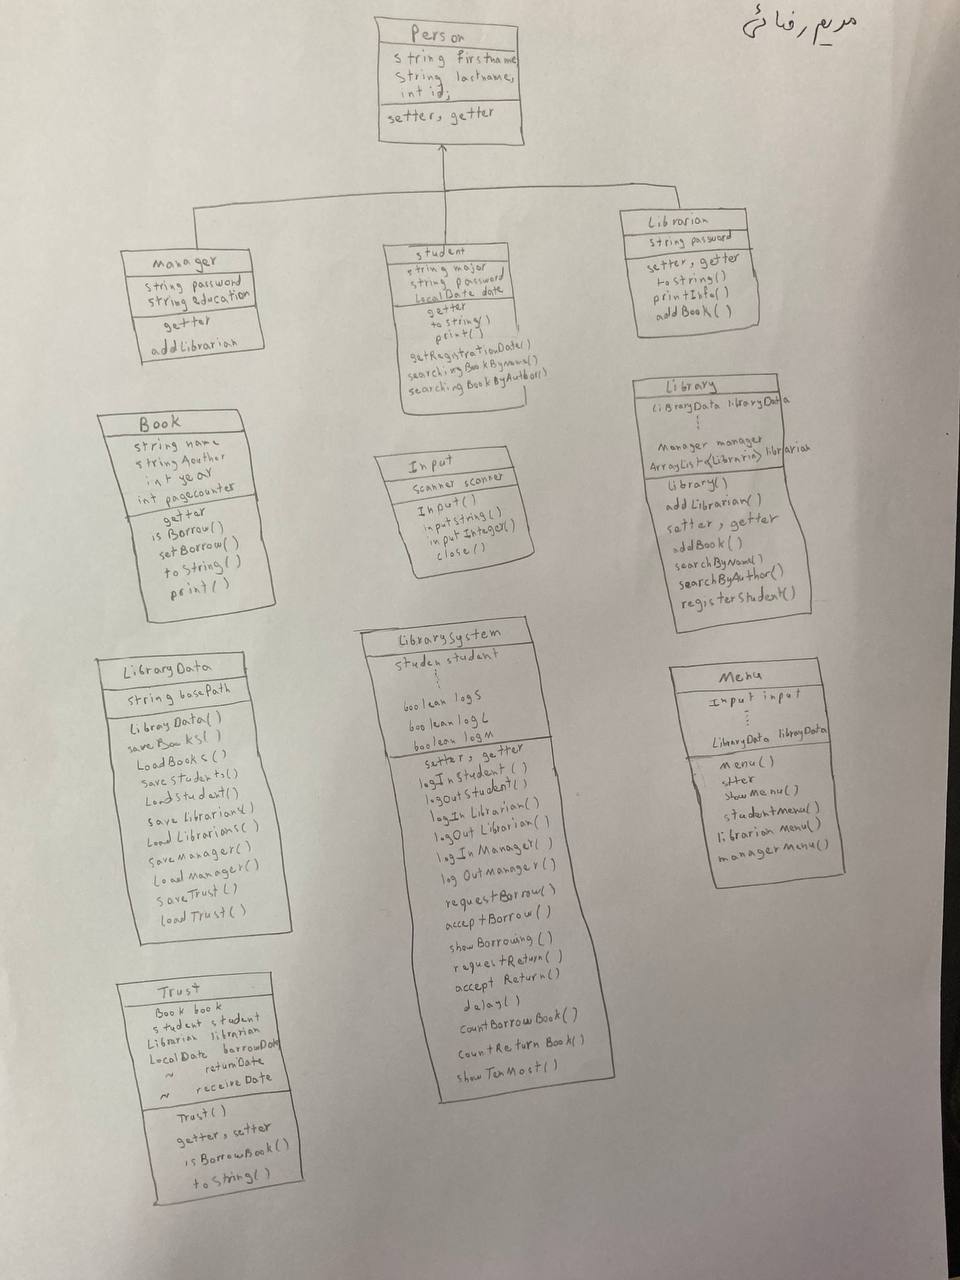 مریم رفائی
Person
string firstname
String lastname,
int id;
setter, getter
Manager
string password
string education
getter
addLibrarian
student
string major
string password
LocalDate date
getter
toString()
print()
getRegistrationDate()
searchingBookByName()
searchingBookByAuthor()
Librarian
string password
setter, getter
toString()
printInfo()
addBook()
Book
string name
string Aouther
int year
int pagecounter
getter
isBorrow()
setBorrow()
toString()
print()
Input
Scanner scanner
Input()
inputString()
inputInteger()
close()
Library
LiBraryData libraryData
Manager manager
ArrayList<Librarin> librarian
Library()
addLibrarian()
setter, getter
addBook()
searchByName()
searchByAuthor()
registerStudent()
LibraryData
string basePath
LibrayData()
saveBooks()
LoadBooks()
saveStudents()
LoadStudent()
saveLibrarian()
LoadLibrarians()
saveManager()
LoadManager()
saveTrust()
loadTrust()
LibrarySystem
studen student
boolean logS
boolean logL
boolean logM
setter, getter
logInStudent()
logOutStudent()
logIn Librarian()
logOut Librarian()
logIn Manager()
log OutManager()
requestBorrow()
acceptBorrow()
showBorrowing()
requestReturn()
accept Return()
delay()
countBorrowBook()
countReturn Book()
showTenMost()
Menu
Input input
LibraryData librayData
Menu()
stter
showMenu()
studentMenu()
librarian Menu()
managerMenu()
Trust
Book book
student student
Librarian librarian
LocalDate borrowDate
~ returnDate
~ receiveDate
Trust()
getter, setter
isBorrowBook()
toString()